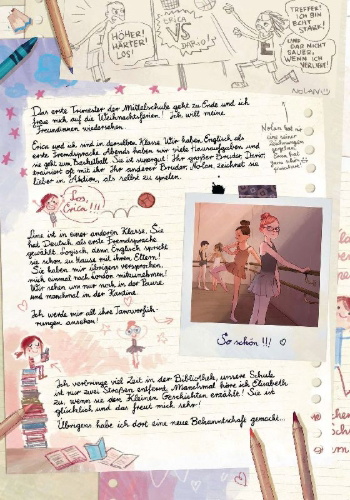 HÖHER!
HÄRTER!
LOS!
ERICA
VS
DARIO!
TREFFER!
ICH BIN
ECHT
STARK!
UND
DAR NICHT
SAUER,
WENN ICH
VERLIERE!
NOLAN!!!
Das erste Trimester der Mittelschule geht zu Ende und ich
freue mich auf die Weihnachtsferien! Ich will meine
Freundinnen wiedersehen.
Erica und ich sind in derselben Klasse. Wir haben Englisch als
erste Fremdsprache. Abends haben wir viele Hausaufgaben und
sie geht zum Basketball. Sie ist supergut! Ihr großer Bruder, Dario,
trainiert oft mit ihr. Ihr anderer Bruder, Nolan, zeichnet sie
lieber in Aktion, als selbst zu spielen.
Nolan hat mir
eine seiner
Zeichnungen
gegeben.
Erica hat
Los,
Erica!!!
Line ist in einer anderen Klasse. Sie
hat Deutsch als erste Fremdsprache
gewählt. Logisch, denn Englisch spricht
sie schon zu Hause mit ihren Eltern!
Sie haben mir übrigens versprochen,
mich einmal nach London mitzunehmen!
Wir sehen uns nur noch in der Pause
und manchmal in der Kantine.
Ich werde mir all ihre Tanzvorfüh-
rungen ansehen!
So schön!!!
Ich verbringe viel Zeit in der Bibliothek, unsere Schule
ist nur zwei Straßen entfernt. Manchmal höre ich Elisabeth
zu, wenn sie den Kleinen Geschichten erzählt! Sie ist
glücklich und das freut mich sehr!
Übrigens habe ich dort eine neue Bekanntschaft gemacht...